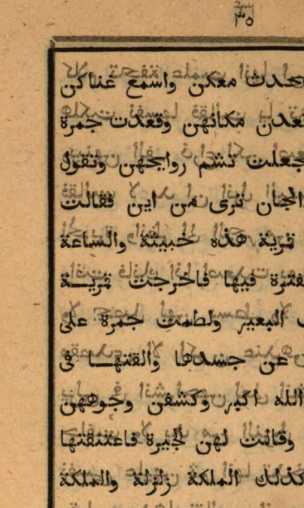 ٣٥
معكن واسمع غناكن
مكانهن وقعدت جمرة
جعلت تشم روايحهن وتقول
الجان ترى من اين فقالت
قرية هذه خبيثة والساعة
فيها فاخرجت قريـة
البعير ولطمت جمرة على
عن جسدها والقتهـا فى
الله اكبر وكشفن وجوههن
وقامت لهن فاعتنقتها
كذلك الملكة زلزلة والملكة